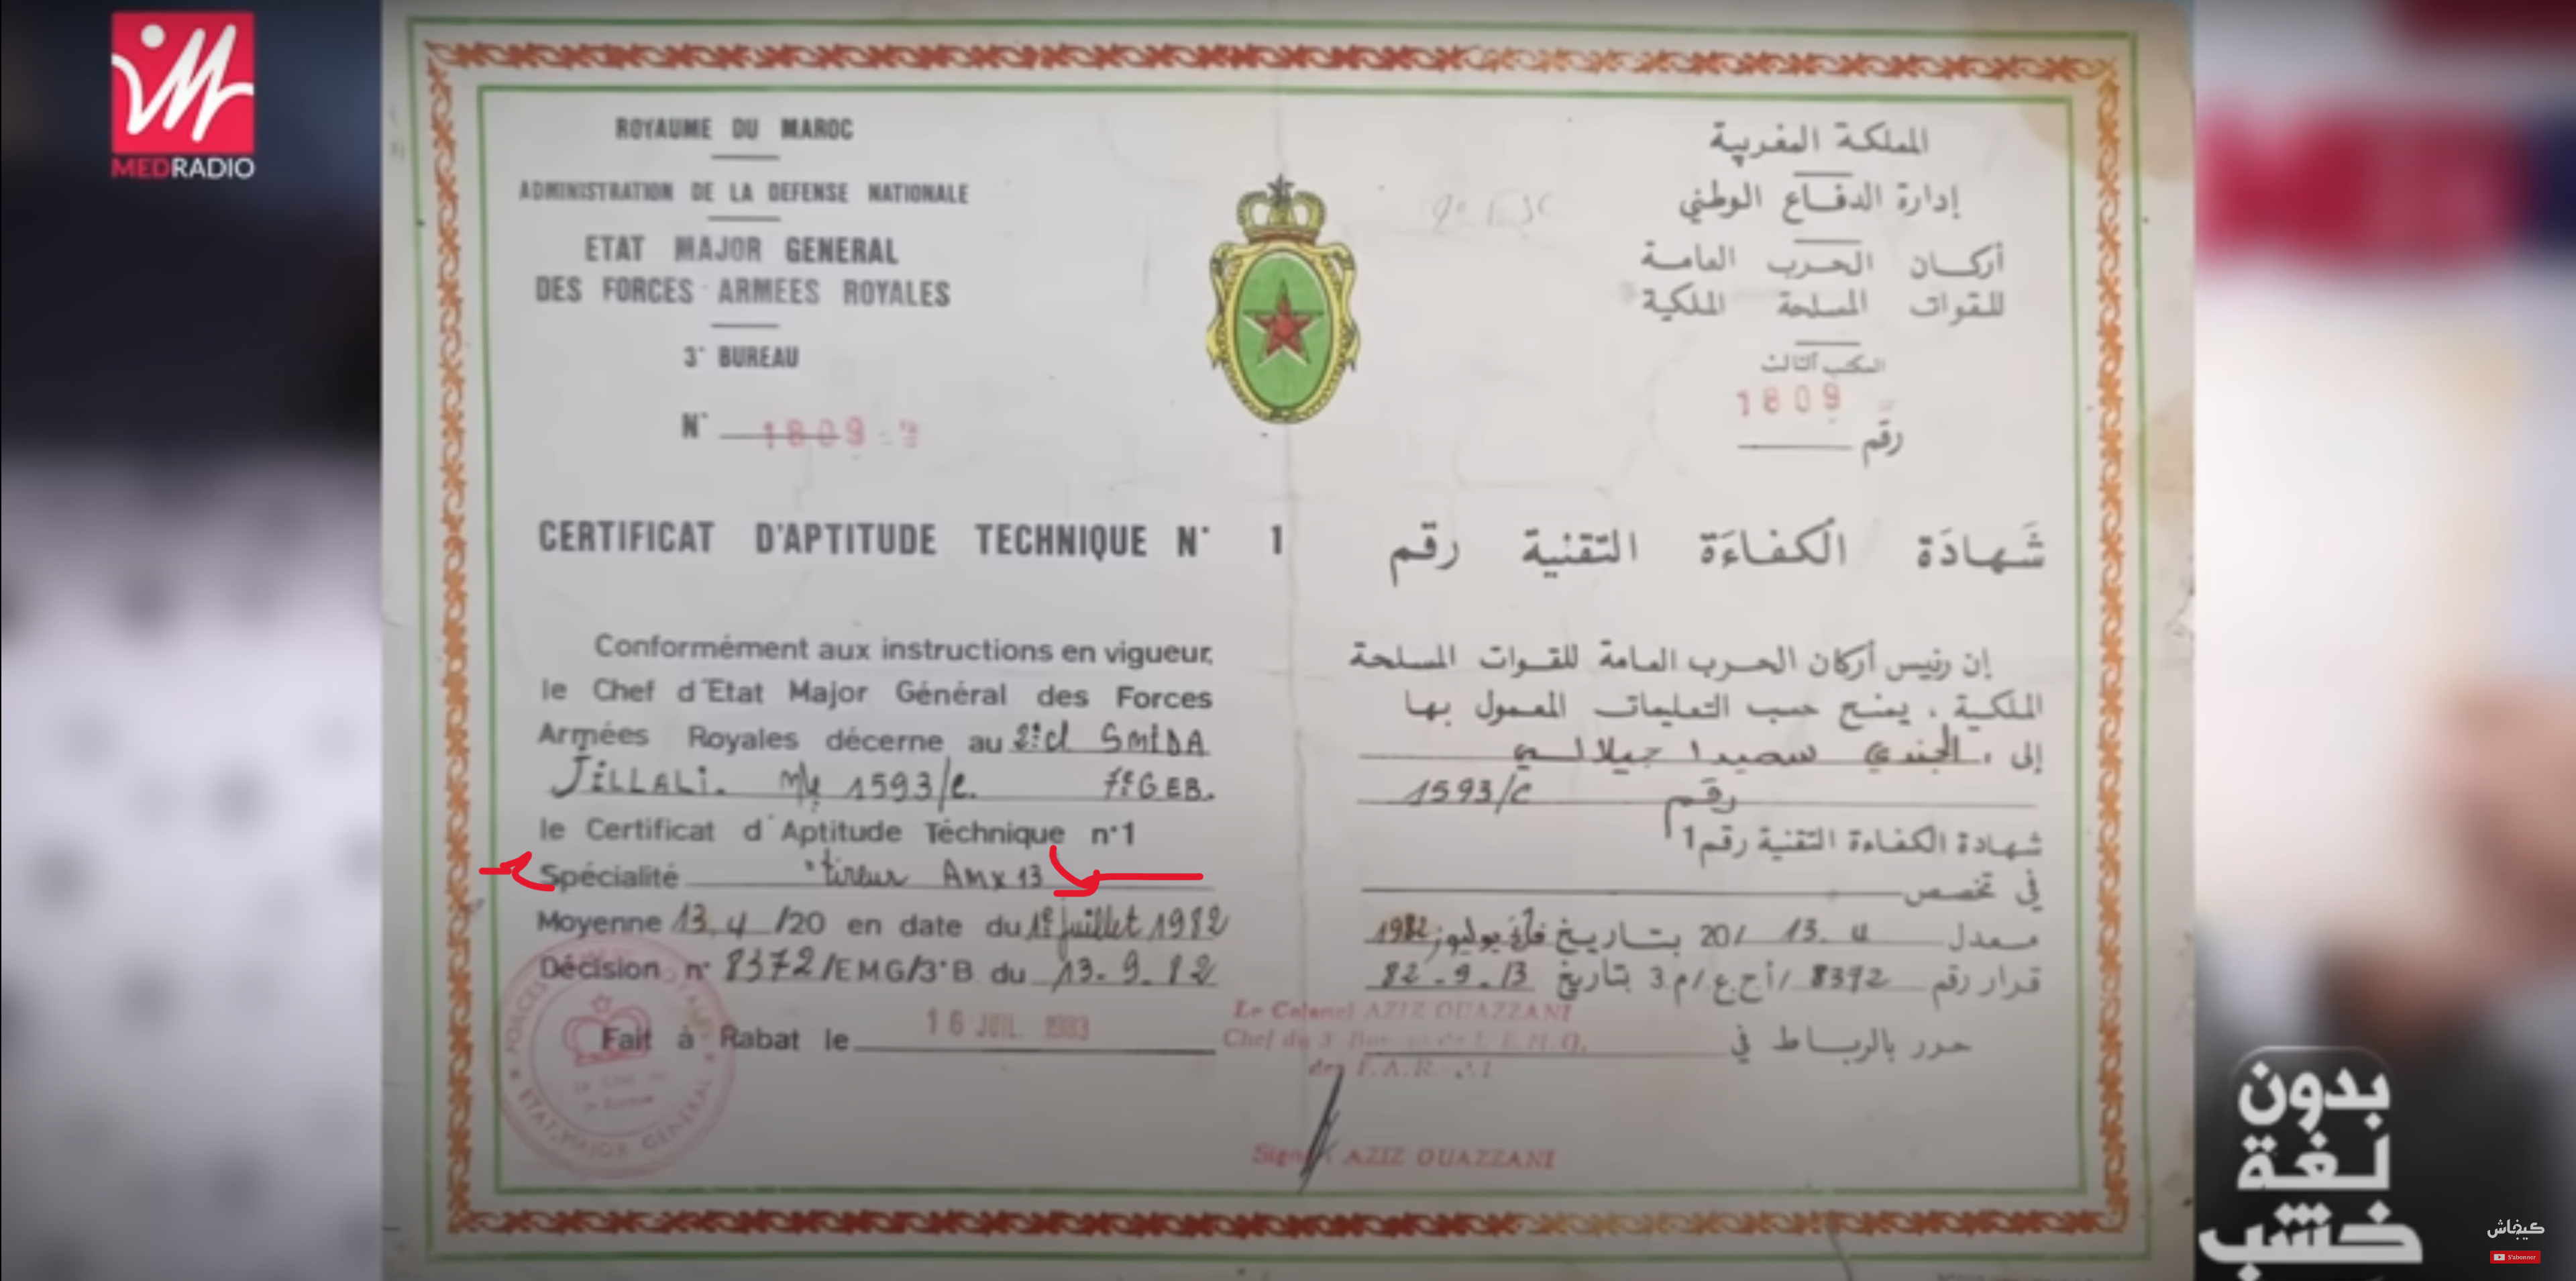 MEDRADIO
ROYAUME DU MAROC
ADMINISTRATION DE LA DEFENSE NATIONALE
ETAT MAJOR GENERAL
DES FORCES ARMEES ROYALES
3° BUREAU
N° 1809
المملكة المغربية
إدارة الدفاع الوطني
أركان الحرب العامة
للقوات المسلحة الملكية
المكتب الثالث
1809
رقم
CERTIFICAT D'APTITUDE TECHNIQUE N° 1
شَهادَة الْكفاءَة التقنية رقم
Conformément aux instructions en vigueur,
le Chef d'Etat Major Général des Forces
Armées Royales décerne au 2°cl SMIDA
JILLALI. Mle 1593/C. 7°GEB.
le Certificat d'Aptitude Téchnique n°1
Spécialité "tireur Amx 13
Moyenne 13,4 /20 en date du 1° juillet 1982
Décision n° 8372/EMG/3°B du 13-9-82
Fait à Rabat le 16 JUIL. 1983
إن رئيس أركان الحرب العامة للقوات المسلحة
الملكية ، يمنح حسب التعليمات المعمول بها
إلى ، الجندي سميدا جيلالي
رقم 1593/C
شهادة الكفاءة التقنية رقم 1
في تخصص
معدل 13.4 /20 بتاريخ فاتح يوليوز 1982
قرار رقم 8372 /أ.ح.ع/م.3 بتاريخ 13-9-82
حرر بالرباط في
Le Colonel AZIZ OUAZZANI
Chef du 3° E.M.G.
des F.A.R.
AZIZ OUAZZANI
ETAT MAJOR GENERAL
بدون
لغة
خشب
كيفاش
S'abonner